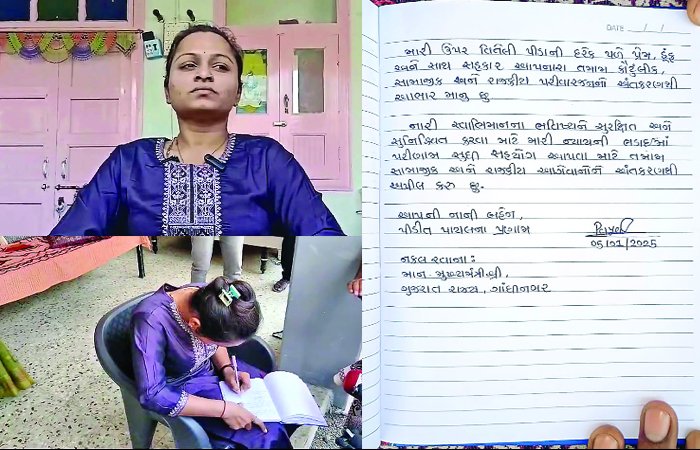 DATE / /
મારી ઉપર વિતેલી પીડાની દરેક પળે પ્રેમ, હુંફ
અને સાથ સહકાર આપનારા તમામ કૌટુંબીક,
સામાજીક અને રાજકીય પરીવારજનોનો અંતઃકરણથી
આભાર માનુ છુ
નારી સ્વાભિમાનના ભવિષ્યને સુરક્ષિત અને
સુનિશ્ચિત કરવા માટે મારી ન્યાયની લડાઈમાં
પરીણામ સુધી સહયોગ આપવા માટે તમામ
સામાજીક અને રાજકીય આગેવાનોને અંતઃકરણથી
અપીલ કરુ છુ.
આપની નાની બહેન,
પીડીત પાયલના પ્રણામ
05/01/2025
નકલ રવાના:
માન. મુખ્યમંત્રીશ્રી,
ગુજરાત રાજ્ય, ગાંધીનગર